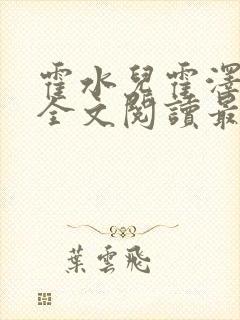 霍水兒霍澤
全文閱讀最
葉雲飛